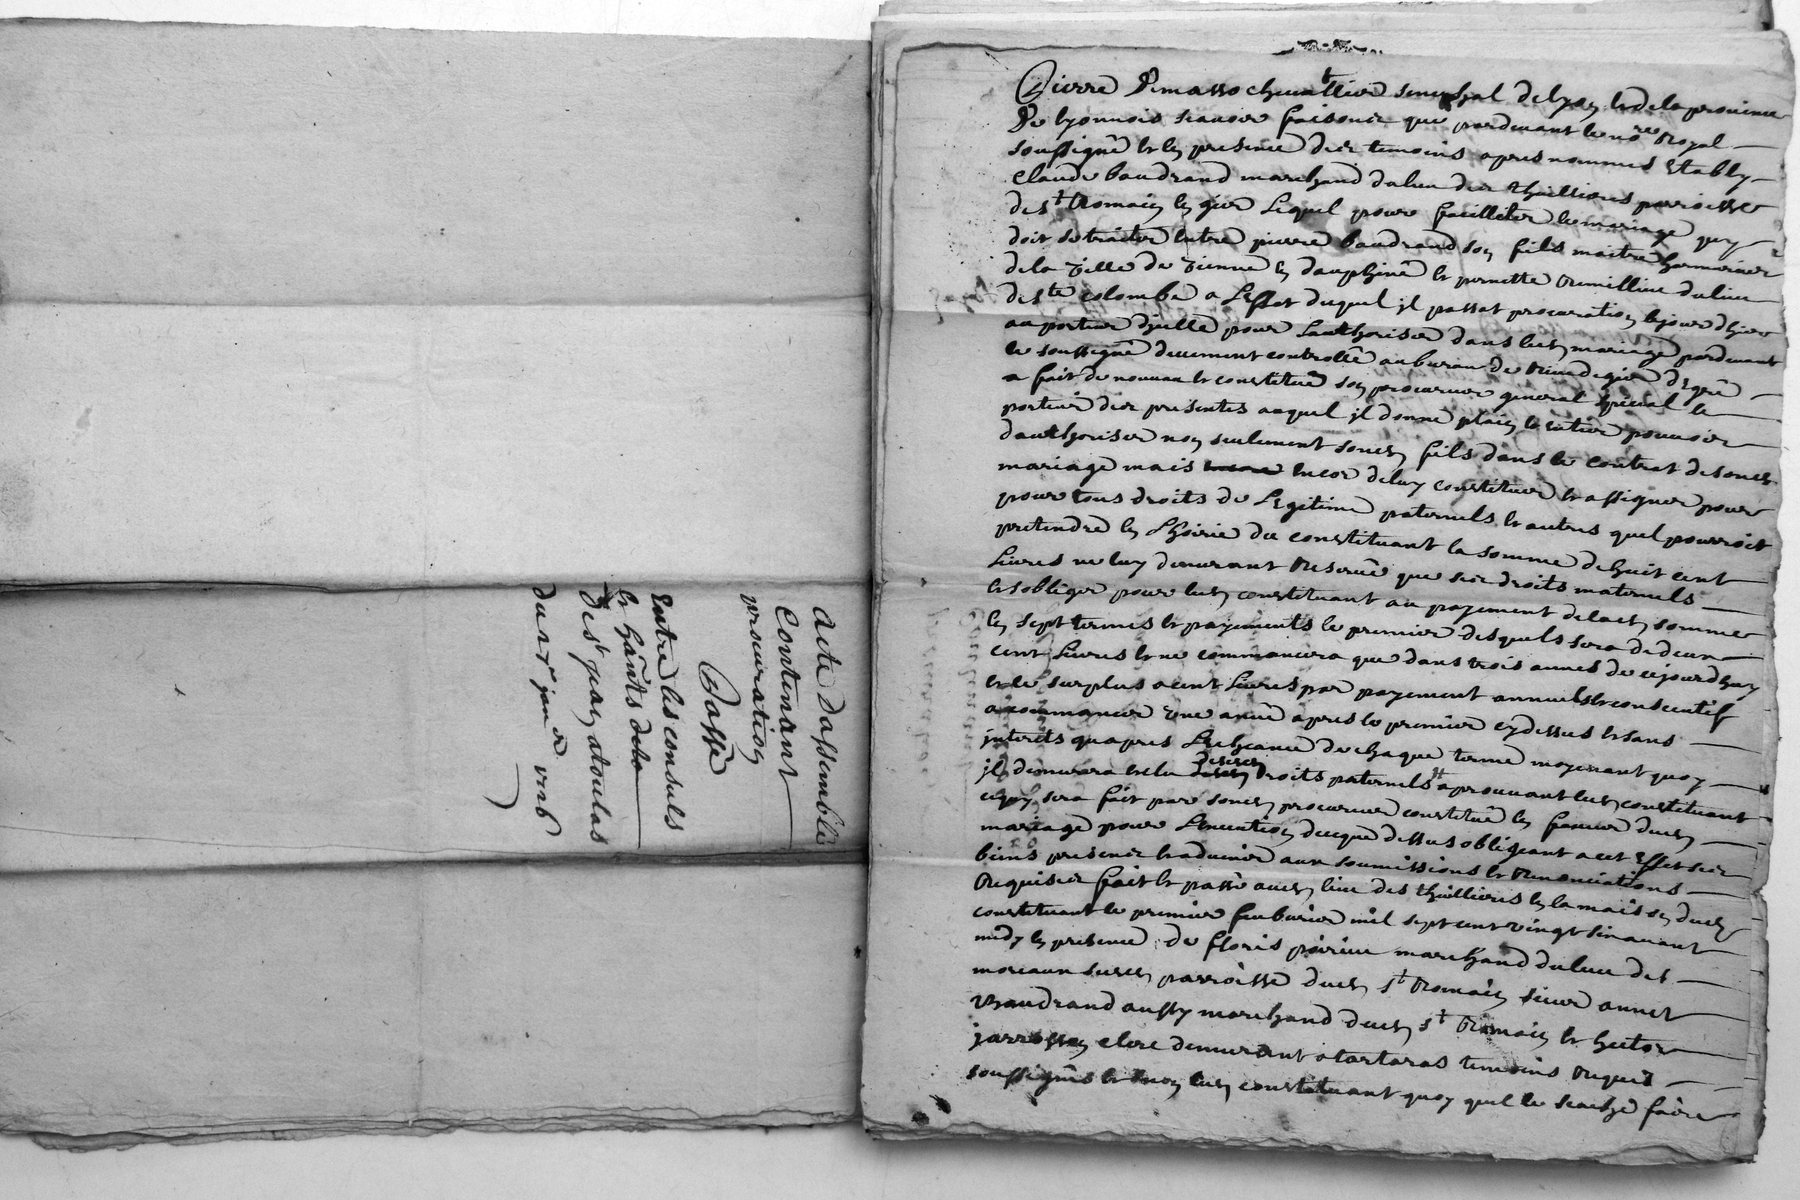 acte dassemblée
Contenant
procuration
Passé
Entre les consuls
et hânts dela
de st jean atoulas
du
Pierre Demasso chevallier senechal delyon et dela province
De lyonnois scavoir faisons que pardevant le nore Royal
soussigné et en presence des temoins apres nommes Estably
claude baudrand marchand dulieu des thuillieres parroisse
de st Romain en gier Lequel pour facilliter le mariage quy
doit setraiter entre pierre baudrand son fils maitre
dela ville de vienne en dauphiné et pernette dulieu
de ste colombe a Leffet duquel jl passat procuration le jour dhier
au porteur djcelle pour Lauthoriser dans led mariage pardevant
le soussigné deuement controllé au bureau de Rivedegier degré
a fait de nouveau et constitué son procureur general special le
porteur des presentes auquel jl donne plain et entier pouvoir
dauthoriser non seulement sond fils dans le contrat de sond
mariage mais encor deluy constituer et assigner pour
pour tous droits de Legitime paternels et autres quel pourroit
pretendre en Lhoirie du constituant la somme de huit cent
Livres ne luy demeurant Reservé que ses droits maternels
et sobliger pour led constituant au payement delad somme
en sept termes et payements le premier desquels sera de deux
cent Livres et ne commancera que dans trois annes de cejourdhuy
et le surplus a cent Livres par payement annuel et consecutif
a commancer une année apres le premier cydessus et sans
jnterets quapres Lecheance de chaque terme moyenant quoy
jl demeurera exclu desesd droits paternels aprouvant led constituant
cequy sera fait par sond procureur constitué en faveur dud
mariage pour Lexecution ducque dessus obligeant a cet Effet ses
biens presents et advenir aux soumissions et Renonciations
Requises fait et passé aud lieu des thuillieres en la maison dud
constituant le premier febvrier mil sept cent vingt six avant
midy en presence de floris poirieu marchand dulieu des
moreaux susd parroisse dud st Romain sieur annet
Baudrand aussy marchand dud st Romain et hector
jarrosson clerc demeurant atartaras temoins Requis
soussignés et non led constituant quoy quel le scache faire